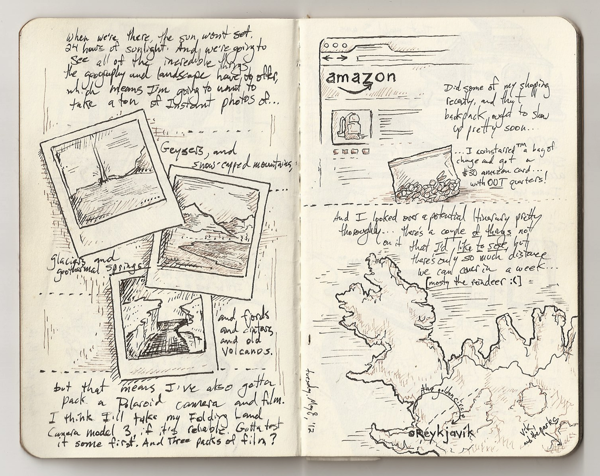 When we're there, the sun won't set.
24 hours of sunlight. And we're going to
see all of the incredible things
the geography and landscape have to offer,
which means I'm going to want to
take a ton of Instant photos of...
Geysers, and
snow-capped mountains,
glaciers and
geothermal springs,
and fjords
and
and old
Volcanos.
but that means I've also gotta
pack a Polaroid camera and film.
I think I'll take my Folding Land
Camera model 3, if it's reliable. Gotta test
it some first. And Three packs of film?
amazon
Did some of my shopping
recently, and they
backpack, ought to show
up pretty soon...
...I coinstarred™ a bag of
change and got a
$50 amazon card...
with OUT quarters!
And I looked over a potential Itinerary pretty
thoroughly... there's a couple of things not
on it that I'd like to see, but
there's only so much distance
we can cover in a week...
[mostly the reindeer :(]
May 8, '12
the
Reykjavik